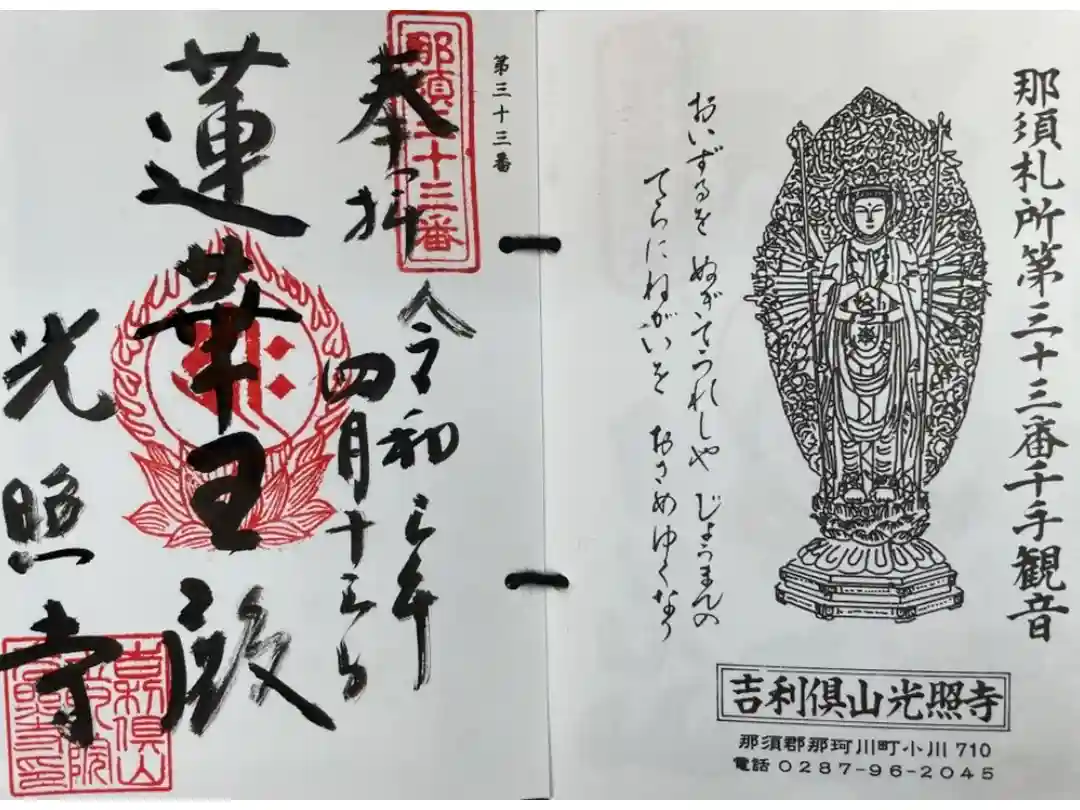 那須札所第三十三番千手観音
おいずるを ぬぎてうれしや じょうまんの
てらにねがいを おさめゆくなり
吉利倶山光照寺
那須郡那珂川町小川710
電話0287-96-2045
第三十三番
那須三十三番
奉拝
令和三年
四月十三日
蓮華王殿
光照寺
吉利倶山